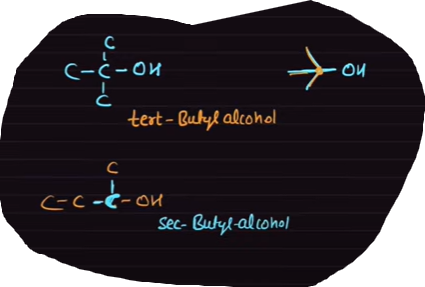 C
C-C-OH
C
OH
tert-Butyl alcohol
C
C-C-C-OH
sec-Butyl-alcohol